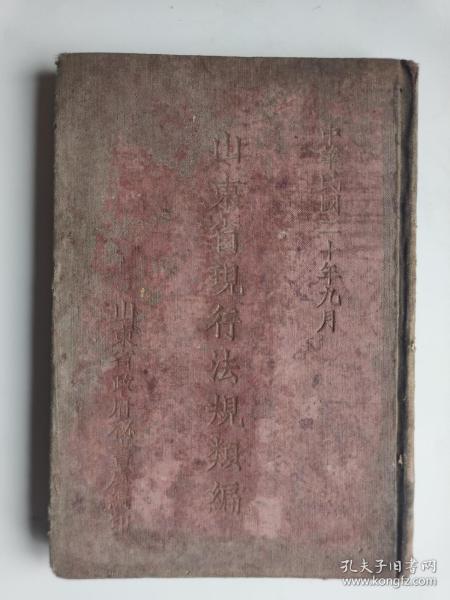 中華民國二十年九月
山東省現行法規類編
山東省政府秘書處編印
孔夫子旧书网
www.kongfz.com